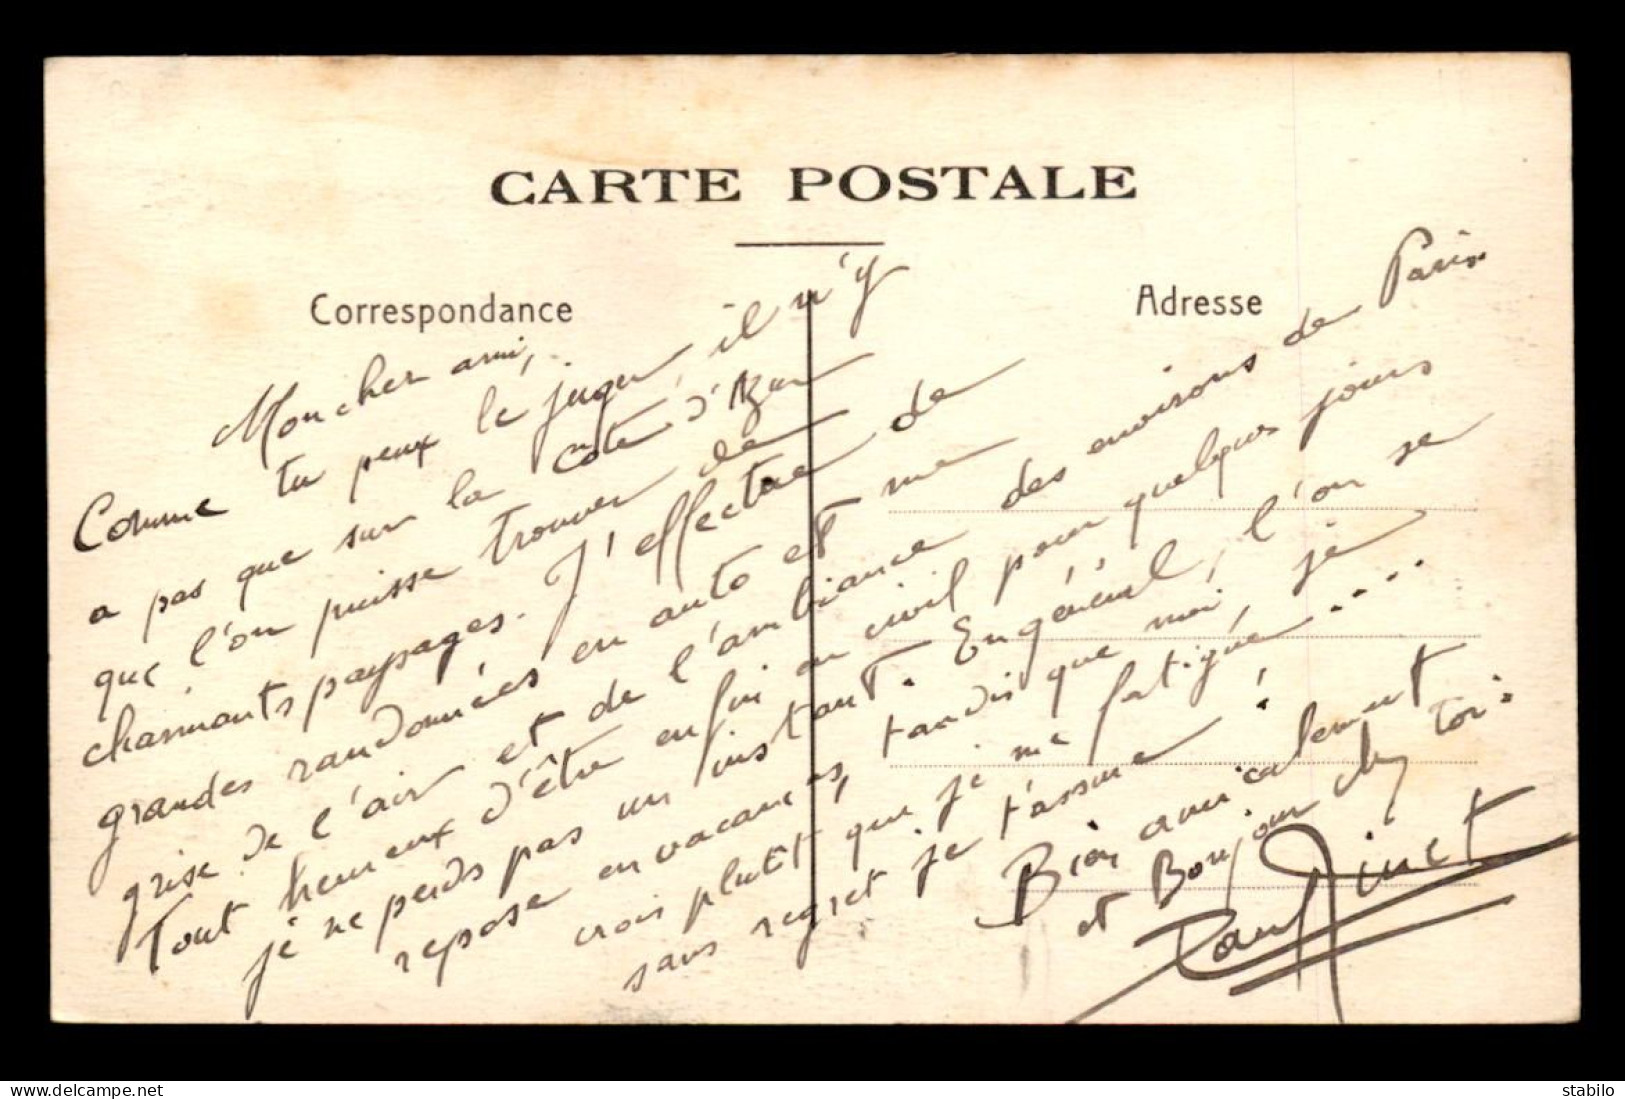 CARTE POSTALE
Correspondance
Adresse
Mon cher ami,
Comme tu peux le juger, il n'y
a pas que sur la côte d'Azur
que l'on puisse trouver de
charmants paysages. J'effectue de
grandes randonnées en auto et me
grise de l'air et de l'ambiance des environs de Paris
Tout heureux d'être enfin en civil pour quelques jours
je ne perds pas un instant. En général, l'on se
repose en vacances, tandis que moi, je
crois plutôt que je me fatigue....
sans regret je t'assure !
Bien amicalement
et Bonjour chez toi.
Paul
stabilo